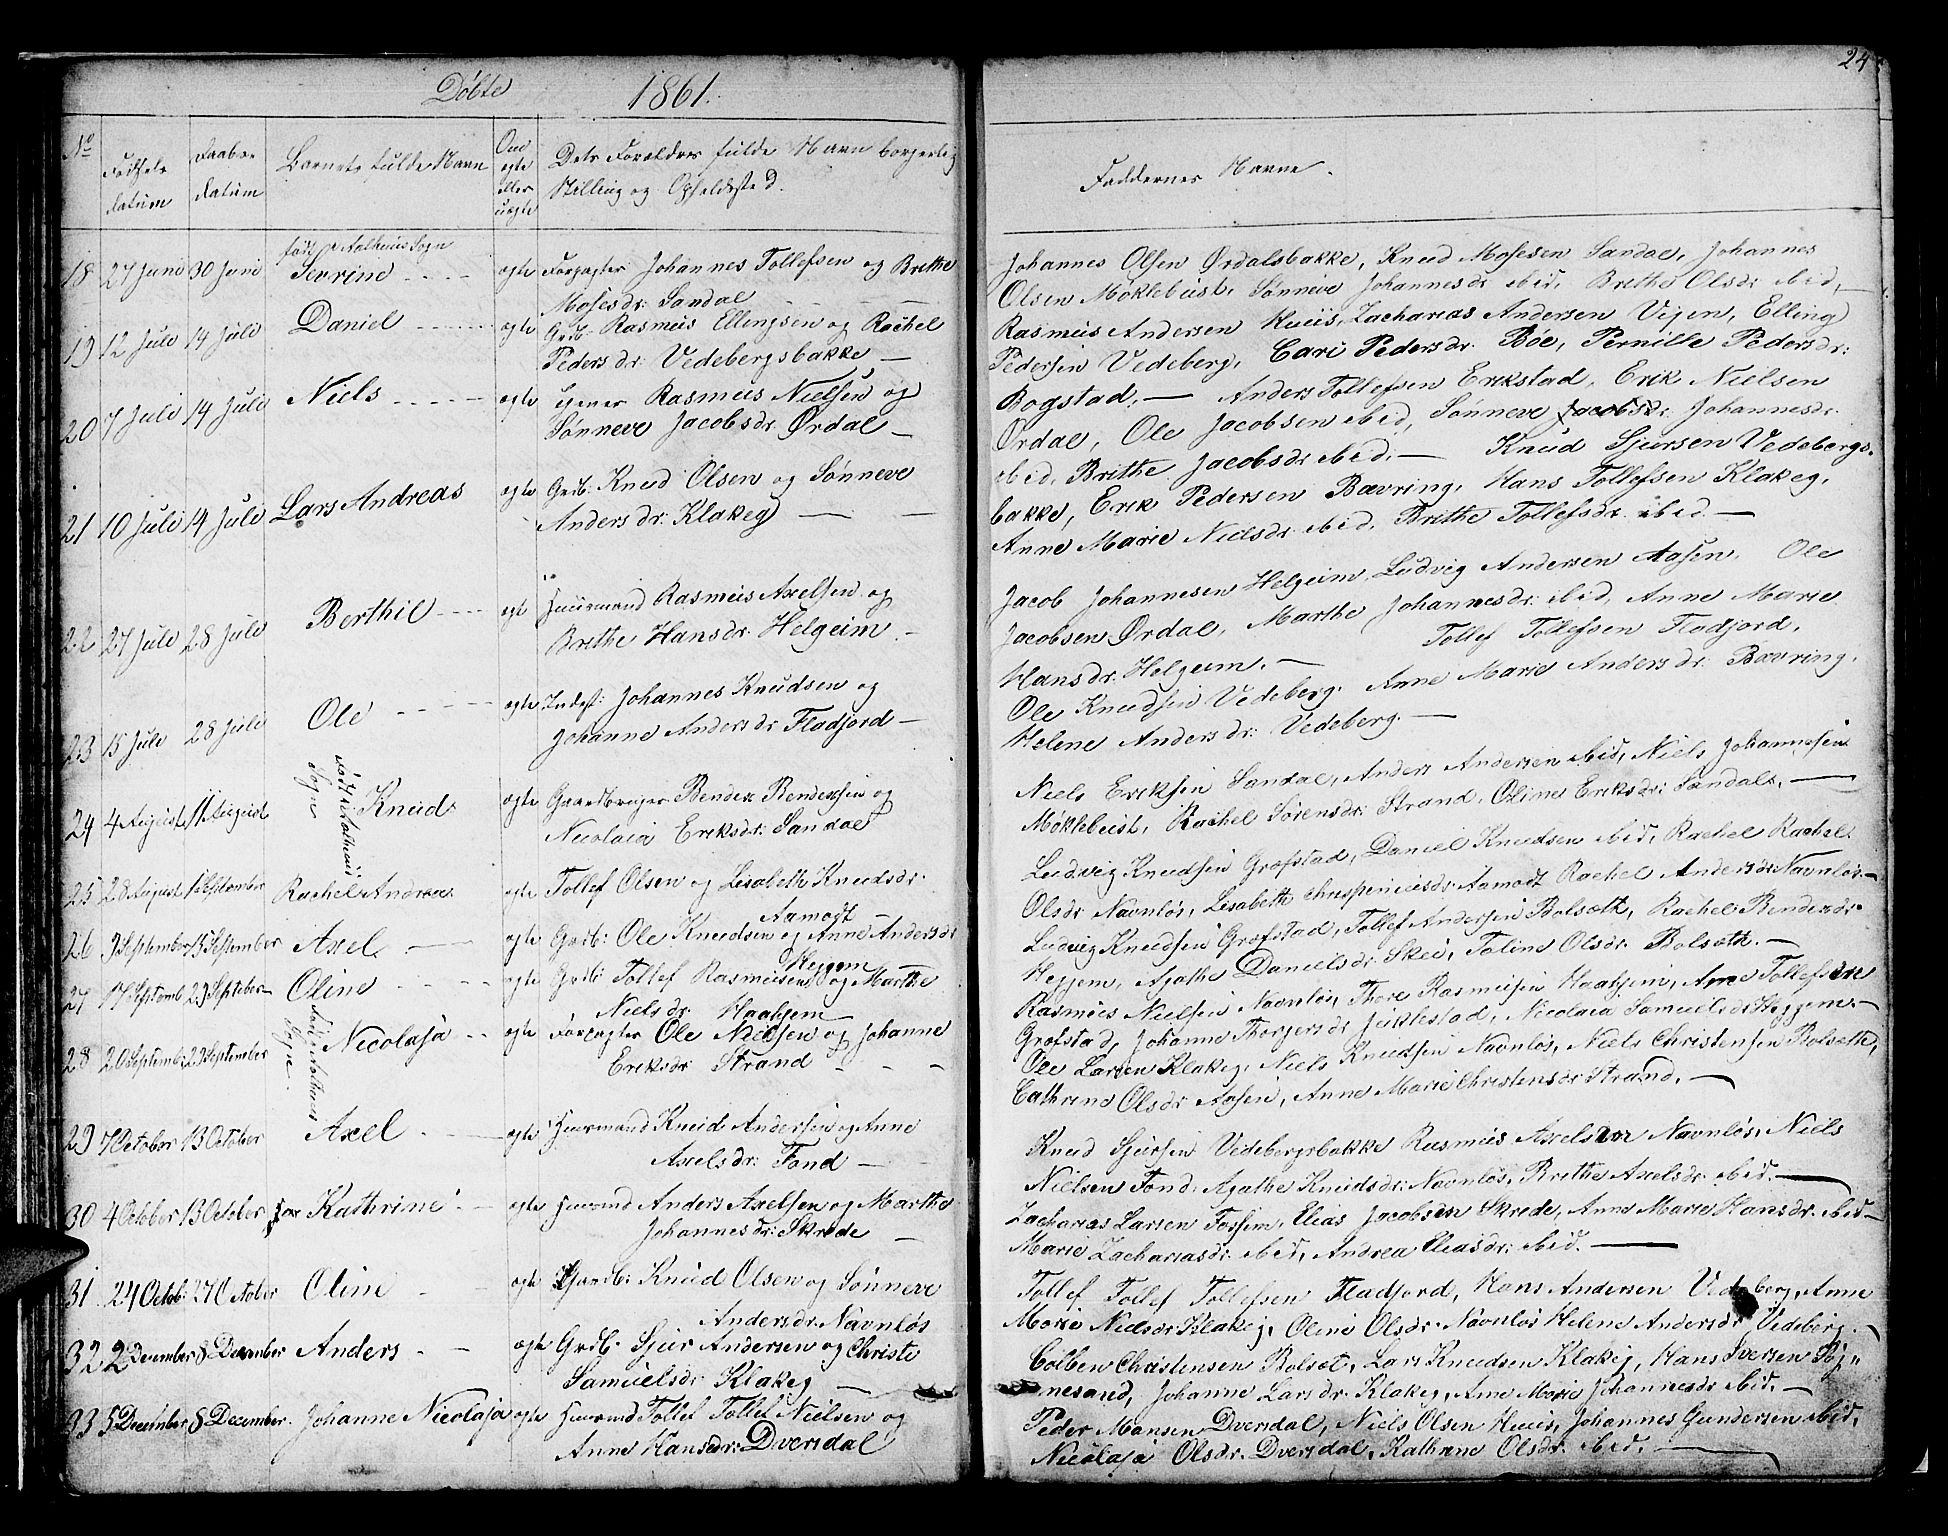 Døbte 1861.
24
No Fødsels datum Daabs datum Barnets fulde Navn Om ægte eller uægte Dets Forældres fulde Navn borgerlig Stilling og Opholdssted.
Faddernes Navne.
18 27 Juni 30 Juni født i Aalhuus Sogn Serrine ægte Forpagter Johannes Tollefsen og Brithe
Mosesdr: Sandal
19 12 Juli 14 Juli Daniel ægte Grdb: Rasmus Ellingsen og Rachel
Pedersdr: Vedebergsbakke
20 7 Juli 14 Juli Niels ægte Rasmus Nielsen og
Sønneve Jacobsdr. Ørdal
21 10 Juli 14 Juli Lars Andreas ægte Grdb: Knud Olsen og Sønneve
Andersdr: Klakeg
22 27 Juli 28 Juli Berthil ægte Huusmand Rasmus Axelsen og
Brithe Hansdr. Helgeim
23 15 Juli 28 Juli Ole ægte Inderst: Johannes Knudsen og
Johanne Andersdr Fladfjord
24 4 August 11 August født i Aalhuus Sogn Knud ægte Gaardbruger Bendix Bendixsen og
Nicolaia Eriksdr: Sandal
25 28 August 1 September Rachel Andrea ægte Tollef Olsen og Lisabeth Knudsdr.
Aamodt
26 9 September 15 September Axel ægte Grdb: Ole Knudsen og Anne Andersdr
Heggem
27 17 Septemb 29 September Oline ægte Grdb: Tollef Rasmusen og Marthe
Nielsdr Haahjem
28 20 Septembr 29 September født i Aalhuus Sogn. Nicolaja ægte Forpagter Ole Nielsen og Johanne
Eriksdr Strand
29 7 October 13 October Axel ægte Huusmand Knud Andersen og Anne
Axelsdr: Fond
30 4 October 13 October Kathrine ægte Huusmd Anders Axelsen og Marthe
Johannesdr: Skrede
31 24 Octob: 27 October Oline ægte Gardb: Knud Olsen og Sønneve
Andersdr. Navnløs
32 2 December 8 December Anders ægte Grdb: Sjur Andersen og Christi
Samuelsdr Klakeg
33 5 December 8 December. Johanne Nicolaja ægte Huusmd Tollef Tollef Nielsen og
Anne Hansdr: Dversdal
Johannes Olsen Ørdalsbakke, Knud Mosesen Sandal, Johannes
Olsen Møklebust, Sønneve Johannesdr ibid, Brithe Olsdr ibid,
Rasmus Andersen Huus, Zacharias Andersen Vejen, Elling
Pedersen Vedeberg, Cari Pedersdr. Bøe, Pernille Pedersdr:
Bogstad. Anders Tollefsen Erikstad, Erik Nielsen
Ørdal, Ole Jacobsen ibid, Sønneve Jacobsdr. Johannesdr.
ibid, Brithe Jacobsdr ibid. Knud Sjursen Vedebergs.
bakke, Erik Pedersen Bævring, Hans Tollefsen Klakeg,
Anne Marie Nielsdr ibid, Brithe Tollefsdr. ibid
Jacob Johannesen Helgeim, Ludvig Andersen Aasen, Ole
Jacobsen Ørdal, Marthe Johannesdr: ibid, Anne Marie
Hansdr. Helgeim. Tollef Tollefsen Fladfjord,
Ole Knudsen Vedeberg, Anne Marie Andersdr. Bævring,
Helene Andersdr: Vedeberg.
Niels Eriksen Sandal, Anders Andersen ibid, Niels Johannesen
Møklebust, Rachel Sørensdr: Strand, Oline Eriksdr: Sandal.
Ludvig Knudsen Grøfstad, Daniel Knudsen ibid, Rachel Rachel
Olsdr Navnløs, Lisabeth Aamodt Rachel Andersdr Navnløs
Ludvig Knudsen Grøfstad, Tollef Andersen Bolsæth, Rachel Bendixdr
Heggem, Agathe Danielsdr Skei, Toline Olsdr Bolsæth.
Rasmus Nielsen Navnløs, Thore Rasmusen Haahjem, Ane Tollefsdr
Grøfstad, Johanne Thorgersdr Jiklestad, Nicolaia Samuelsdr Heggem
Ole Larsen Klakeg, Niels Knudsen Navnløs, Niels Christensen Bolseth,
Cathrine Olsdr Aasen, Anne Marie Christensdr Strand.
Knud Sjursen Vedebergsbakke Rasmus Axelsen Navnløs, Niels
Nielsen Fond, Agathe Knudsdr: Navnløs, Brithe Axelsdr ibid.
Zacharias Larsen Fossen, Elias Jacobsen Skrede, Anne Marie Hansdr. ibid
Marie Zachariasdr. ibid, Andrea Eliasdr. ibid.
Tollef Tollef Tollefsen Fladfjord, Hans Andersen Vedeberg, Anne
Marie Nielsdr Klakeg, Oline Olsdr. Navnløs Helene Andersdr Vedeberg.
Colben Christensen Bolsæt, Lars Knudsen Klakeg, Hans Iversen Søg-
nesand, Johanne Larsdr. Klakeg, Ane Marie Johannesdr ibid.
Peder Monsen Dversdal, Niels Olsen Huus, Johannes Gundersen ibid,
Nicolaja Olsdr. Dversdal, Kathrine Olsdr. ibid.